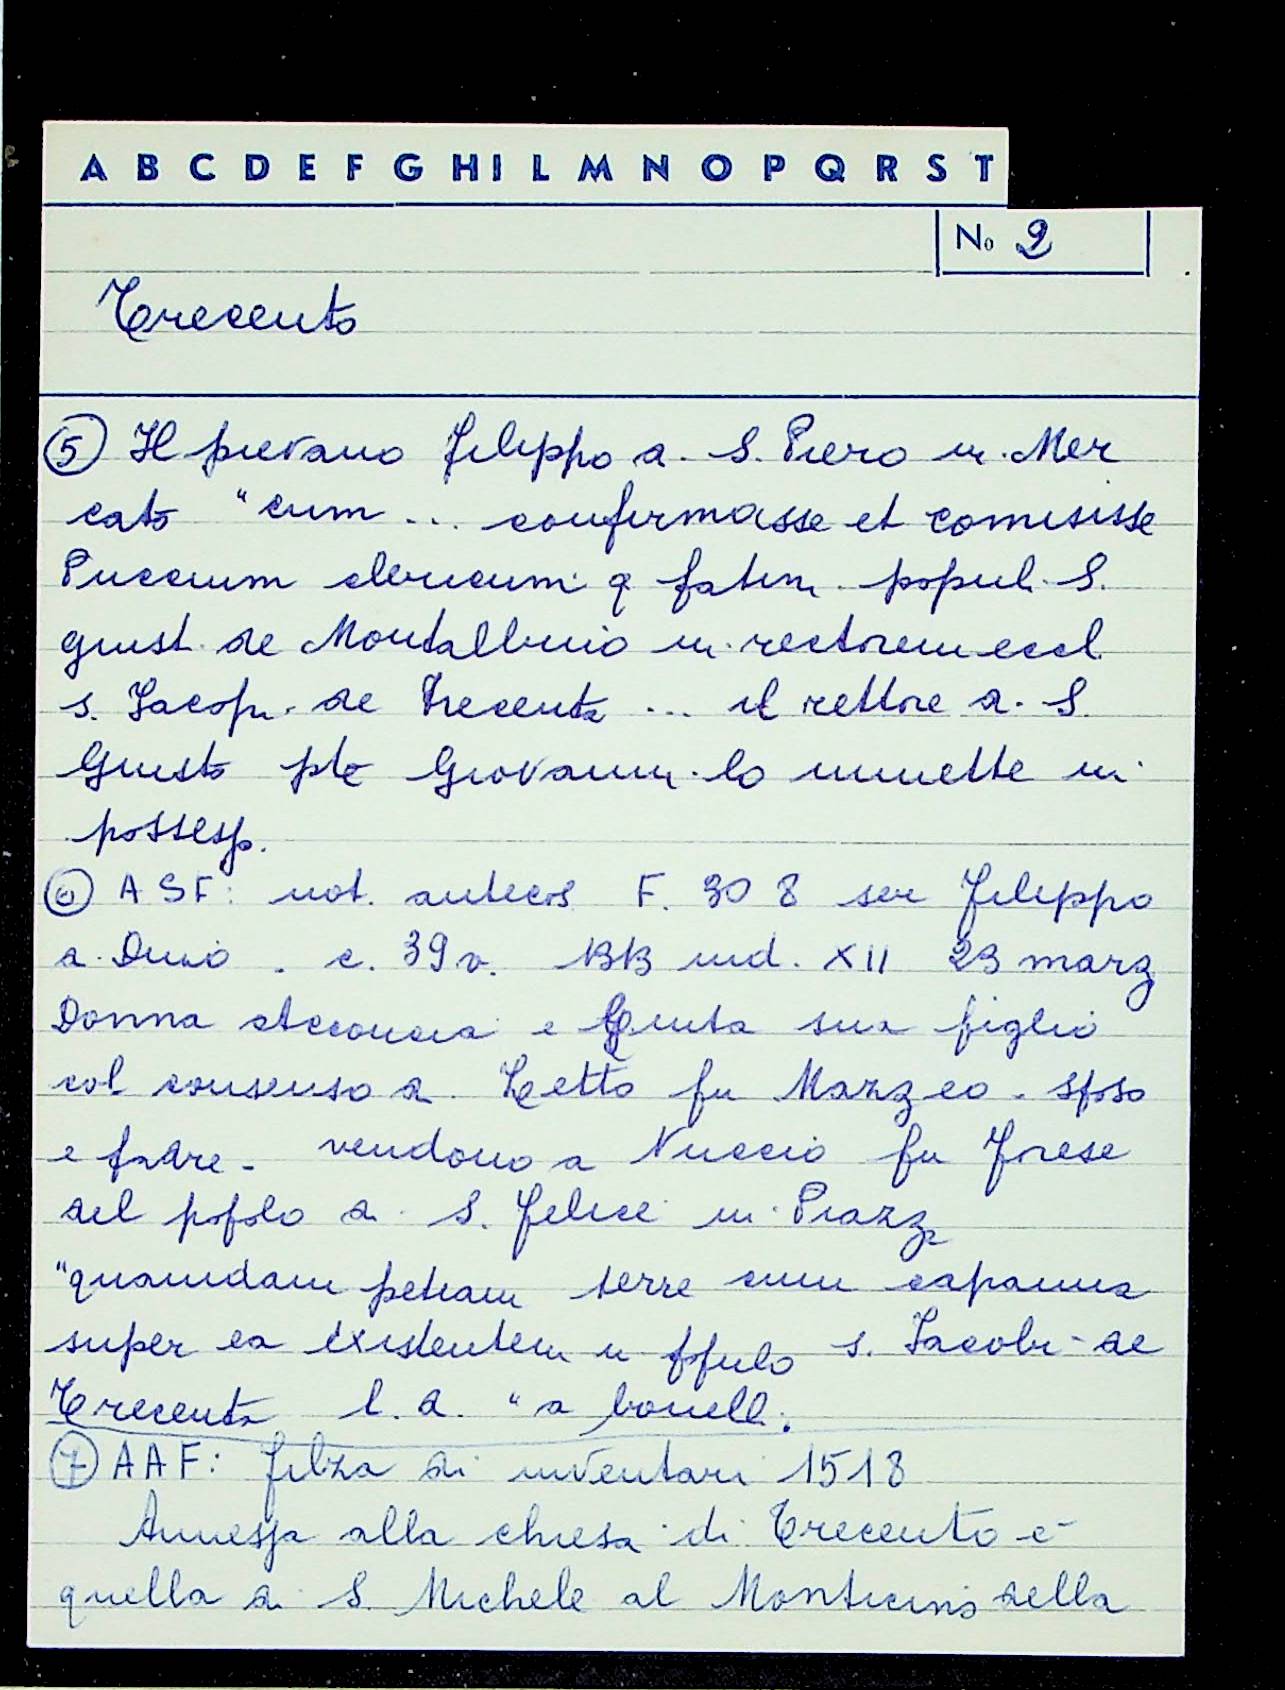 A B C D E F G H I L M N O P Q R S T
No 2
Trecento
⑤ Il pievano Filippo di S. Piero in Mer
cato "cum ... confirmasse et comisisse
Puccium clericum q fatin. popul. S.
Giust. de Montalbino in rectorem eccl.
s. Jacopi de Trecento ... il rettore di S.
Giusto pte Giovanni lo immette in
possesso.
⑥ ASF: not. antecos F. 308 ser Filippo
di Dino. c. 39v. 1313 ind. XII 23 marz
Donna Acconcia e Giunta sua figlio
col consenso di Tetto fu Mazzeo. sposo
e padre. vendono a Nuccio fu Forese
del popolo di S. Felice in Piazz
"quamdam petiam terre cum capanna
super ea existentem in ppulo s. Jacobi de
Trecento l. d. "a bonell.
⑦ AAF: filza di inventari 1518
Annessa alla chiesa di Trecento è
quella di S. Michele al Monticino della